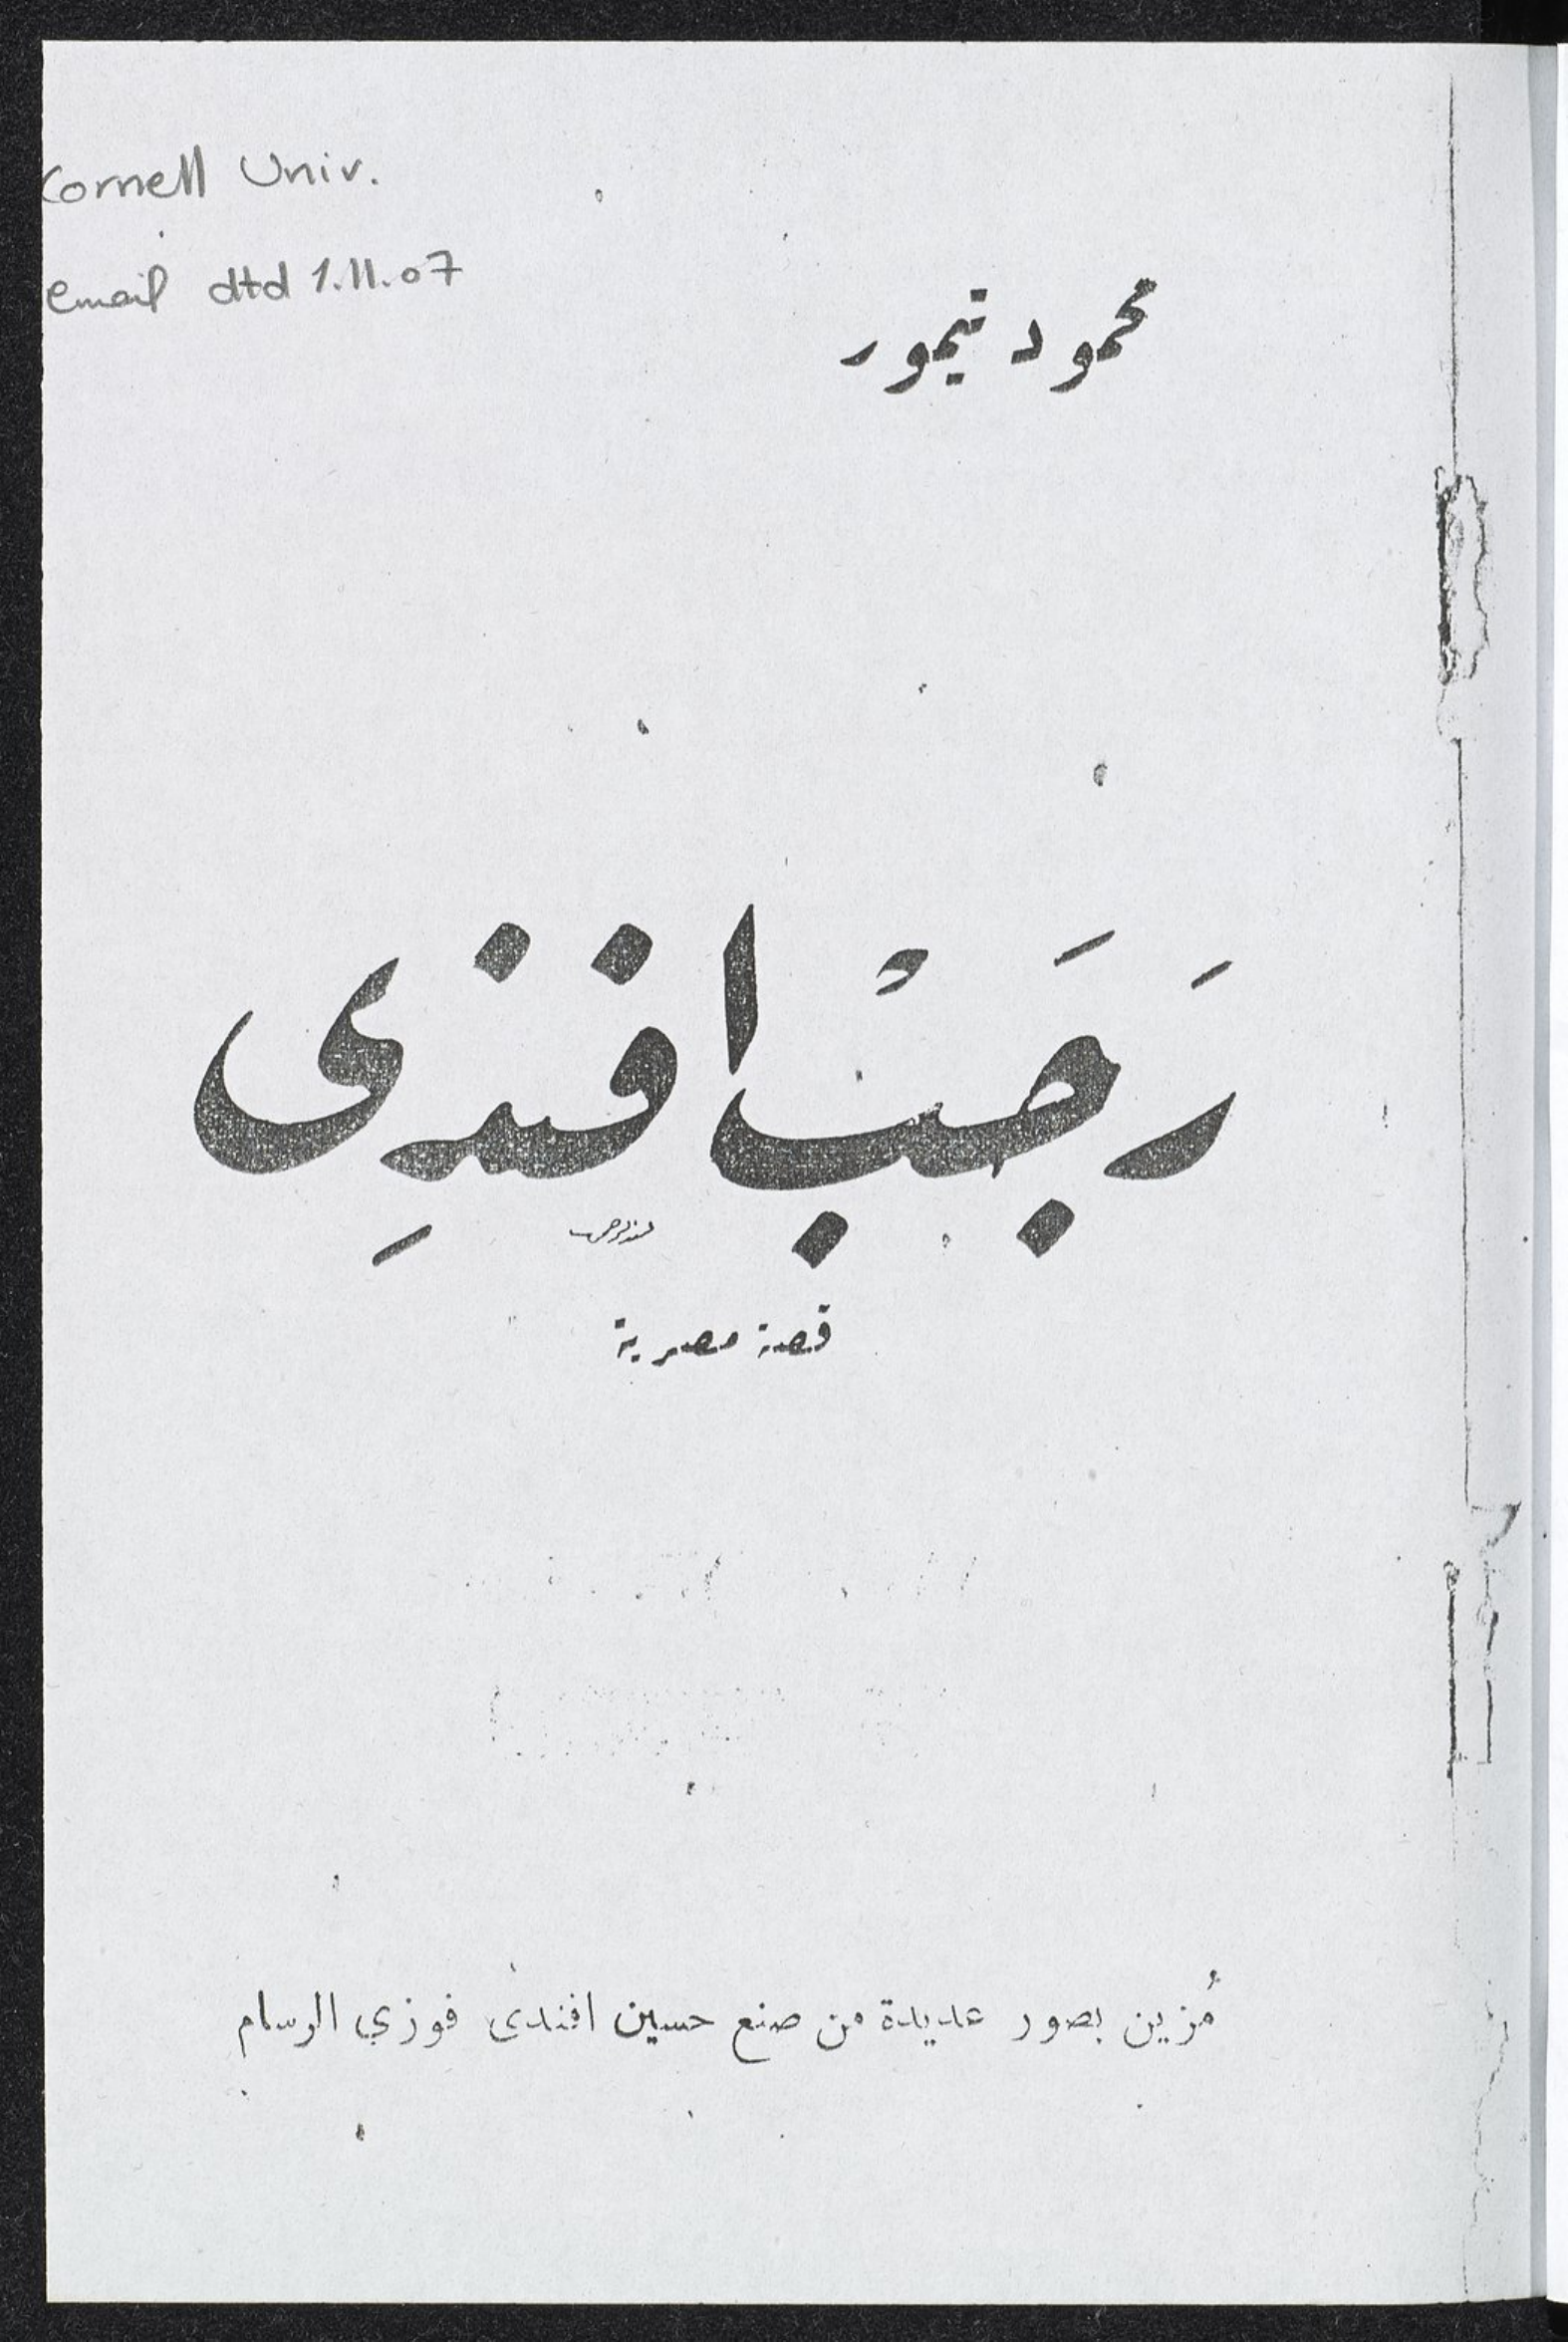 Cornell Univ.
email dtd 1.11.07
محمود تيمور
رَجَبْ افندِى
قصة مصرية
مُزين بصور عديدة من صنع حسين افندى فوزي الرسام